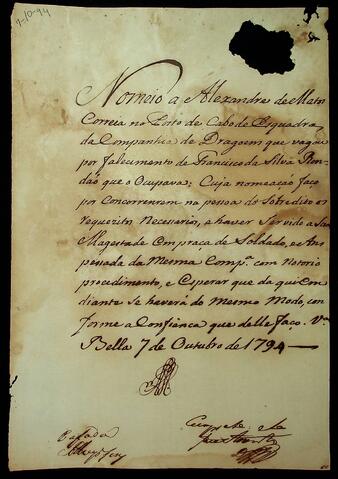 7-10-94
Nomeio a Alexandre de Matos
Correia no Posto de Cabo de Esquadra
da Companhia de Dragoens que vagou
por falecimento de Francisco da Silva Ron-
dão que o Ocupava: Cuja nomeação faço
por Concorrerem na pessoa do Sobredito os
requezitos Necesarios, e haver Servido a Sua
Magestade Com praça de Soldado, e Ans
pesada da Mesma Compª. com Notorio
procedimento, e Esperar que da qui Con
diante Se haverá do Mesmo Modo, con
forme a Confianca que delle faço. Vª
Bella 7 de Outubro de 1794